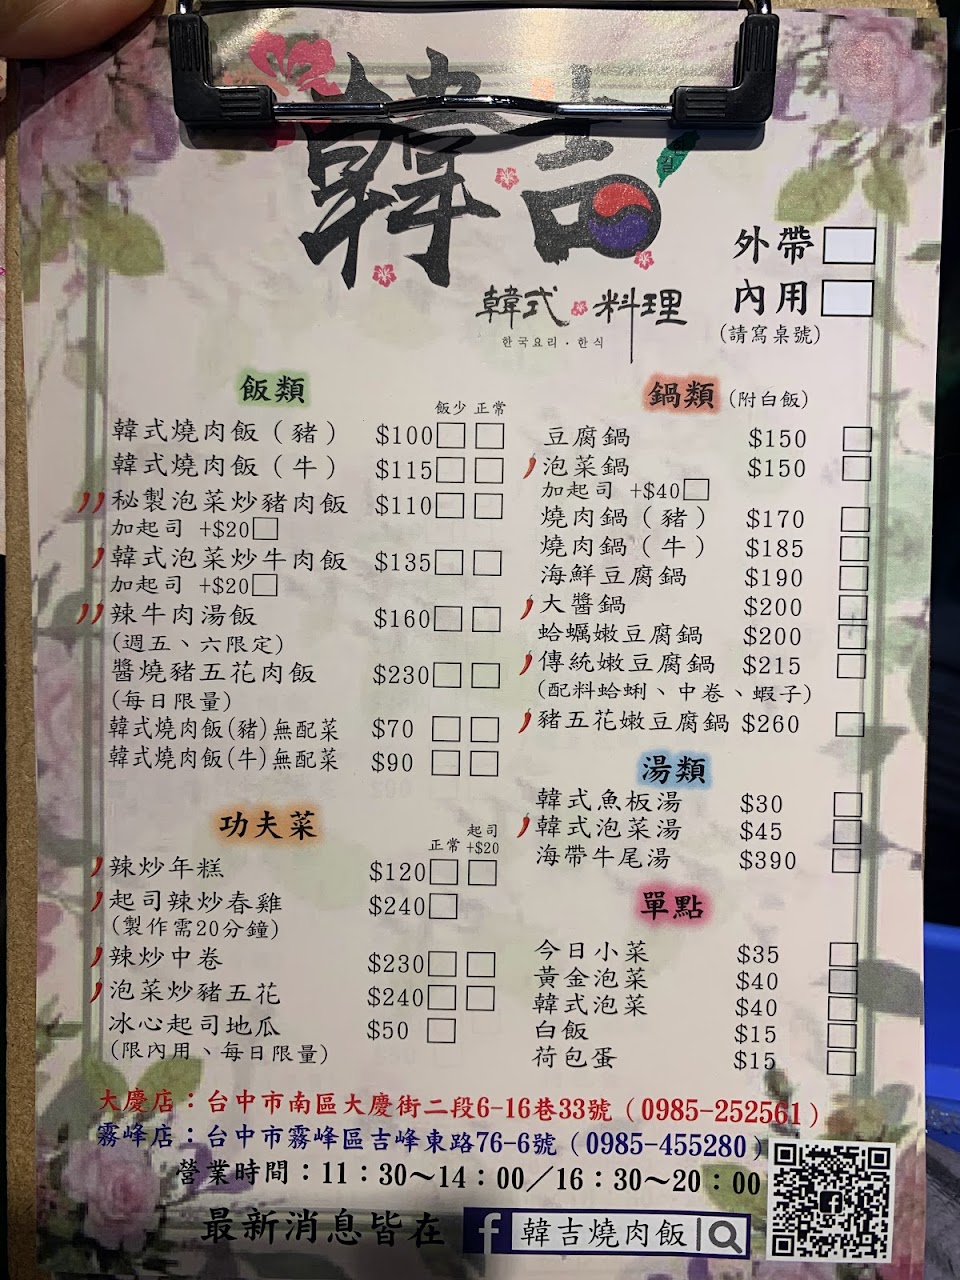 韓吉
길
韓式料理
한국요리·한식
外帶
內用
(請寫桌號)
飯類
飯少 正常
韓式燒肉飯(豬) $100
韓式燒肉飯(牛) $115
秘製泡菜炒豬肉飯 $110
加起司 +$20
韓式泡菜炒牛肉飯 $135
加起司 +$20
辣牛肉湯飯 $160
(週五、六限定)
醬燒豬五花肉飯 $230
(每日限量)
韓式燒肉飯(豬)無配菜 $70
韓式燒肉飯(牛)無配菜 $90
功夫菜
正常 起司+$20
辣炒年糕 $120
起司辣炒春雞 $240
(製作需20分鐘)
辣炒中卷 $230
泡菜炒豬五花 $240
冰心起司地瓜 $50
(限內用、每日限量)
鍋類(附白飯)
豆腐鍋 $150
泡菜鍋 $150
加起司 +$40
燒肉鍋(豬) $170
燒肉鍋(牛) $185
海鮮豆腐鍋 $190
大醬鍋 $200
蛤蠣嫩豆腐鍋 $200
傳統嫩豆腐鍋 $215
(配料蛤蜊、中卷、蝦子)
豬五花嫩豆腐鍋 $260
湯類
韓式魚板湯 $30
韓式泡菜湯 $45
海帶牛尾湯 $390
單點
今日小菜 $35
黃金泡菜 $40
韓式泡菜 $40
白飯 $15
荷包蛋 $15
大慶店：台中市南區大慶街二段6-16巷33號(0985-252561)
霧峰店：台中市霧峰區吉峰東路76-6號(0985-455280)
營業時間：11：30～14：00／16：30～20：00
最新消息皆在 f 韓吉燒肉飯